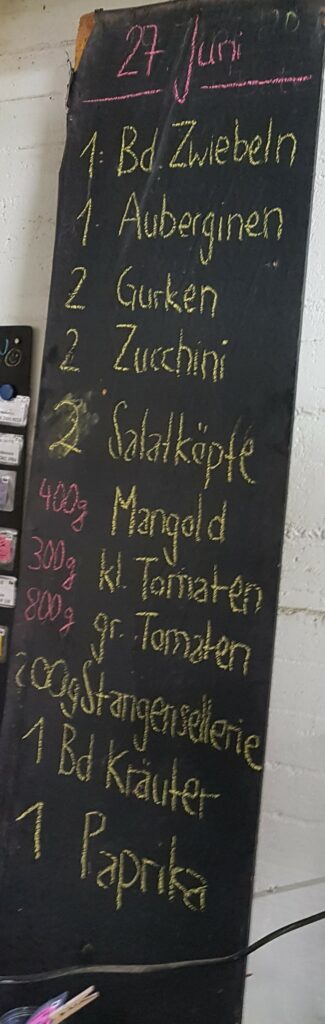 27. Juni
1. Bd. Zwiebeln
1 Auberginen
2 Gurken
2 Zucchini
2 Salatköpfe
400g Mangold
300g kl. Tomaten
800g gr. Tomaten
200g Stangensellerie
1 Bd Kräuter
1 Paprika